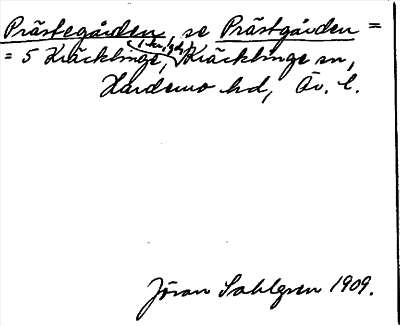 Prästegården, se Prästgården =
= 5 Kräcklinge, Kräcklinge sn,
Hardemo hd, Öv. l.
Jöran Sahlgren 1909.